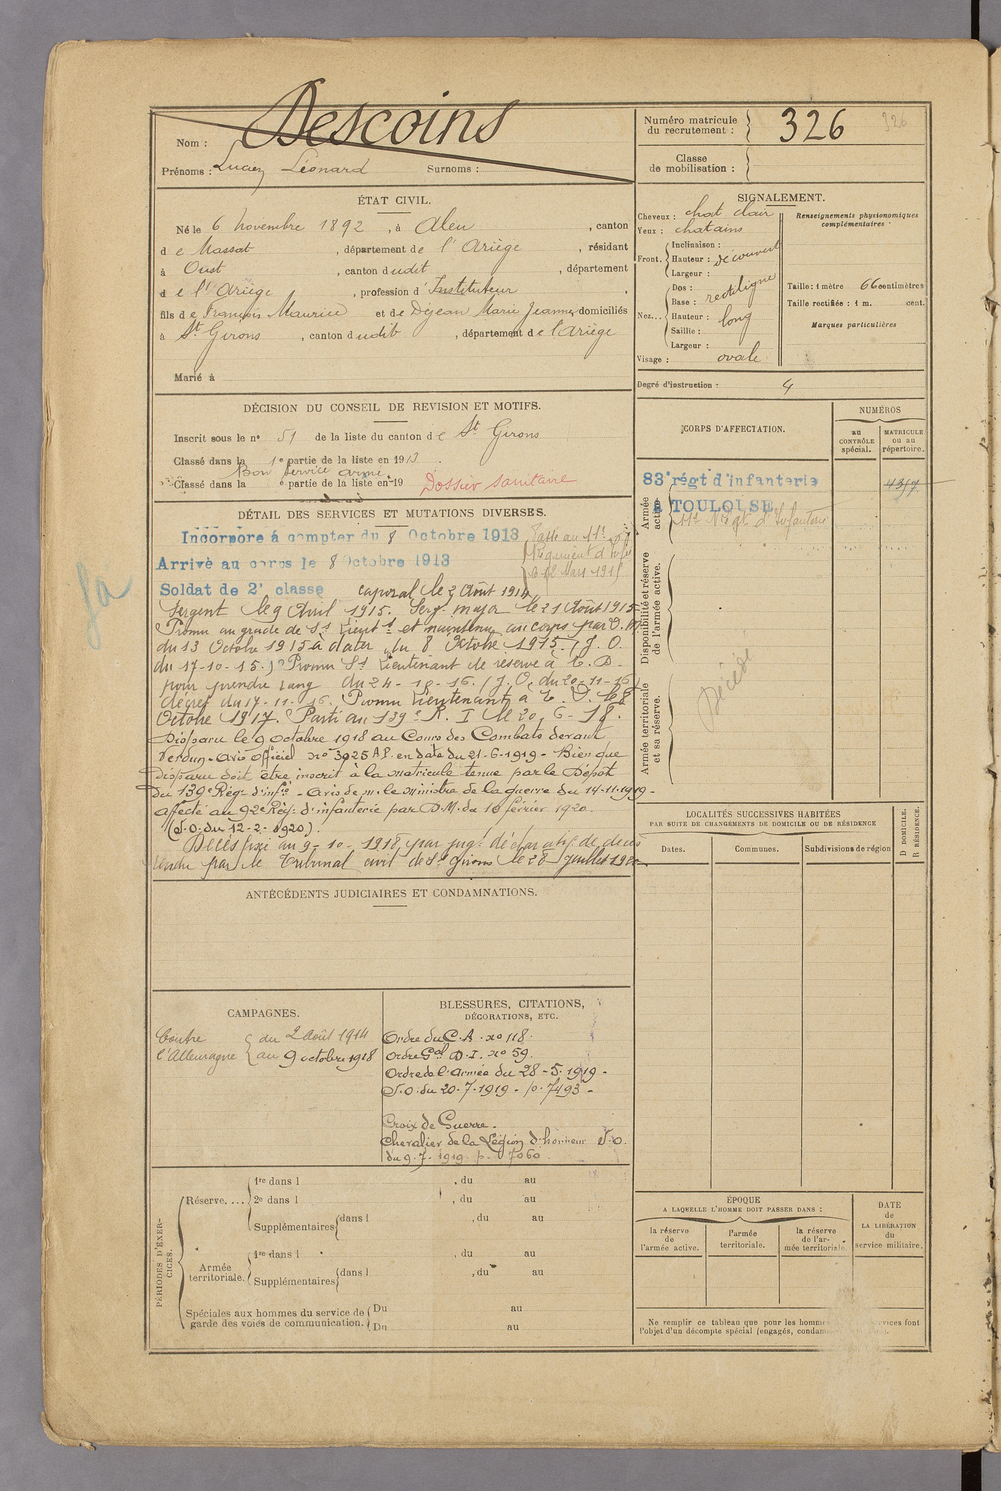 Nom : Descoins
Prénoms : Lucien Léonard Surnoms :
Numéro matricule du recrutement : 326 326
Classe de mobilisation :
ÉTAT CIVIL.
Né le 6 Novembre 1892, à Aleu, canton
de Massat, département de l'Ariège, résidant
à Oust, canton dudit, département
de l'Ariège, profession d'Instituteur
fils de François Maurice et de Dejean Marie Jeanne, domiciliés
à St Girons, canton dudit, département de l'Ariège
Marié à
SIGNALEMENT.
Cheveux : chat clair
Yeux : chatains
Front. Inclinaison :
Hauteur : découvert
Largeur :
Nez... Dos : rectiligne
Base :
Hauteur : long
Saillie :
Largeur :
Visage : ovale
Renseignements physionomiques complémentaires :
Taille : 1 mètre 66 centimètres
Taille rectifiée : 1 m. cent.
Marques particulières
Degré d'instruction : 4
DÉCISION DU CONSEIL DE REVISION ET MOTIFS.
Inscrit sous le n° 51 de la liste du canton de St Girons
Classé dans la 1e partie de la liste en 1913
Bon service armé
Classé dans la e partie de la liste en 19 Dossier sanitaire
CORPS D'AFFECTATION.
NUMÉROS
AU CONTRÔLE spécial.
MATRICULE ou au répertoire.
Armée active.
83e régt d'infanterie
à TOULOUSE
11e Régt d'Infanterie
Disponibilité et réserve de l'armée active.
Armée territoriale et sa réserve.
Décédé
DÉTAIL DES SERVICES ET MUTATIONS DIVERSES.
Incorporé à compter du 8 Octobre 1913
Passé au 11e
Régiment d'Inf
Arrivé au corps le 8 Octobre 1913
Soldat de 2e classe caporal le 2 Août 1914
Sergent le 9 Avril 1915. Serg. major le 21 Août 1915
Promu au grade de St Lieutt et maintenu au corps par D.M.
du 13 Octobre 1915 à dater du 8 Octobre 1915 (J.O.
du 17-10-15.) Promu St Lieutenant de réserve à T.D.
pour prendre rang du 24-10-16. (J.O. du 20-11-16)
décret du 17-11-16. Promu Lieutenant à T.D. le 8
Octobre 1917. Parti au 139e R.I le 20-6-18.
Disparu le 9 octobre 1918 au Cours des Combats devant
Verdun. Avis officiel no 3925 A.P. en date du 21-6-1919 - Bien que
disparu doit être inscrit à la matricule tenue par le Dépôt
du 139e Rég. d'infie - Avis de M. le ministre de la guerre du 14-11-1919 -
affecté au 92e Rég. d'infanterie par D.M. du 10 février 1920
(J.O. du 12-2-1920).
Décès fixé au 9-10-1918, par jugt déclaratif de décès
rendu par le Tribunal civil de St Girons le 28 juillet 1920
LOCALITÉS SUCCESSIVES HABITÉES
PAR SUITE DE CHANGEMENTS DE DOMICILE OU DE RÉSIDENCE
Dates. Communes. Subdivisions de région
D DOMICILE.
R RÉSIDENCE.
ANTÉCÉDENTS JUDICIAIRES ET CONDAMNATIONS.
CAMPAGNES.
Contre l'Allemagne
du 2 Août 1914
au 9 octobre 1918
BLESSURES, CITATIONS,
DÉCORATIONS, ETC.
Ordre du C.A. no 118.
Ordre Gal D.I. no 59.
Ordre de l'Armée du 28-5-1919 -
J.O. du 20-7-1919 - p. 7493 -
Croix de Guerre.
Chevalier de la Légion d'honneur J.O.
du 9.7.1919 p. 7060
PÉRIODES D'EXERCICES.
Réserve.... 1re dans l , du au
2e dans l , du au
Supplémentaires dans l , du au
Armée territoriale. 1re dans l , du au
Supplémentaires dans l , du au
Spéciales aux hommes du service de garde des voies de communication. Du au
Du au
ÉPOQUE
A LAQUELLE L'HOMME DOIT PASSER DANS :
la réserve de l'armée active.
l'armée territoriale.
la réserve de l'armée territoriale.
DATE de LA LIBÉRATION du service militaire.
Ne remplir ce tableau que pour les hommes
l'objet d'un décompte spécial (engagés,